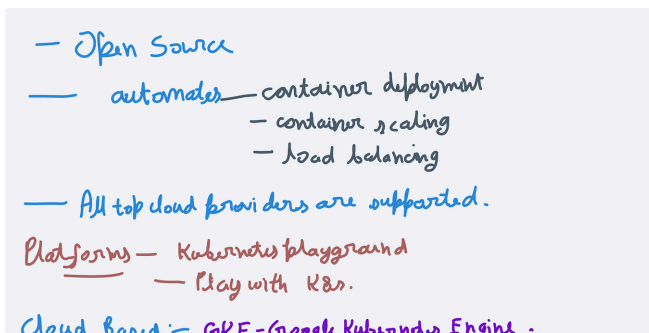 — Open Source
— automates — container deployment
— container scaling
— load balancing
— All top cloud providers are supported.
Platforms — Kubernetes playground
— Play with K8s.
Cloud Based :- GKE - Google Kubernetes Engine.